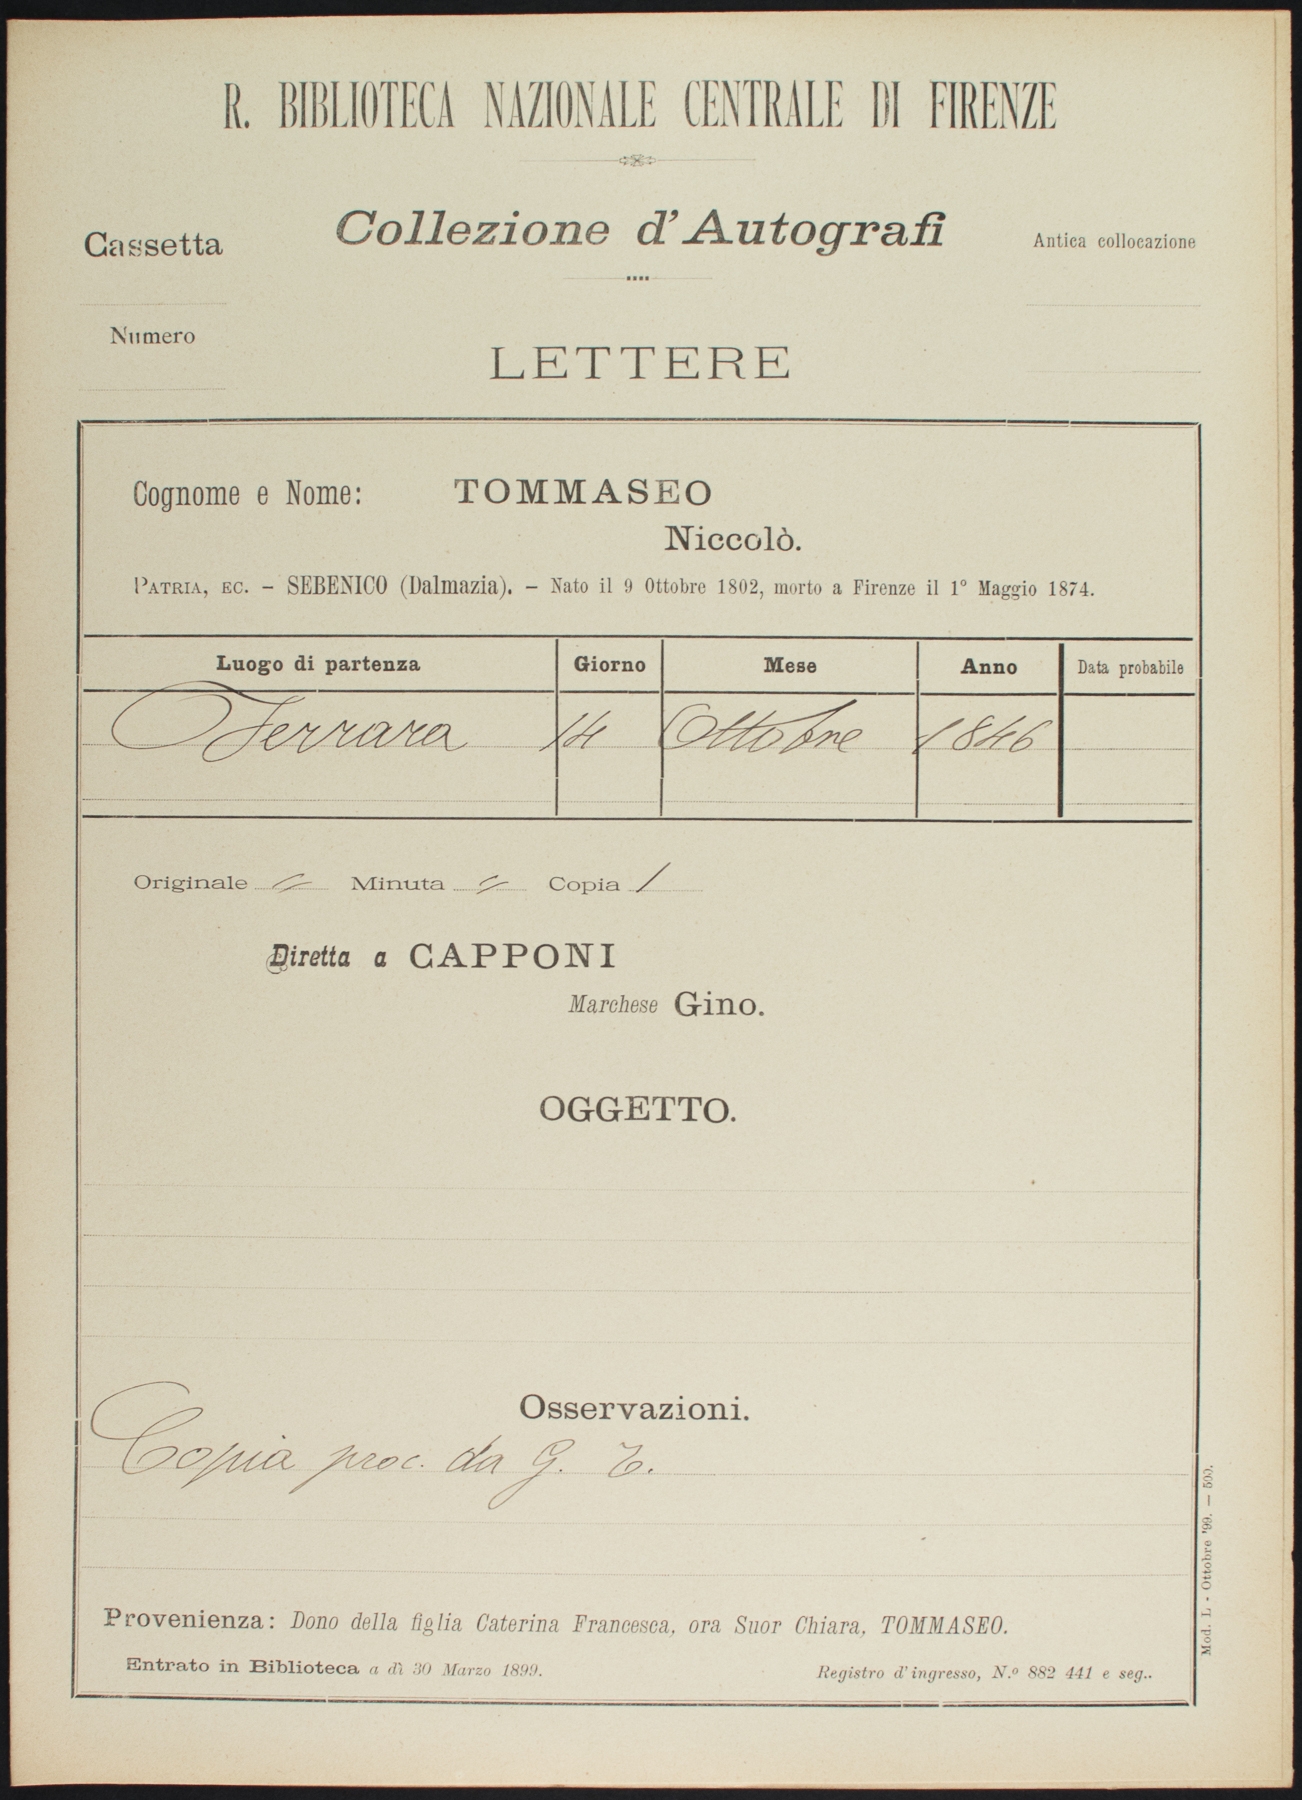 R. BIBLIOTECA NAZIONALE CENTRALE DI FIRENZE
Collezione d'Autografi
Cassetta
Antica collocazione
Numero
LETTERE
Cognome e Nome: TOMMASEO
Niccolò.
PATRIA, EC. – SEBENICO (Dalmazia). – Nato il 9 Ottobre 1802, morto a Firenze il 1° Maggio 1874.
Luogo di partenza Giorno Mese Anno Data probabile
Ferrara 14 Ottobre 1846
Originale = Minuta = Copia 1
Diretta a CAPPONI
Marchese Gino.
OGGETTO.
Osservazioni.
Copia proc. da G. T.
Provenienza: Dono della figlia Caterina Francesca, ora Suor Chiara, TOMMASEO.
Entrato in Biblioteca a dì 30 Marzo 1899.
Registro d'ingresso, N.º 882 441 e seg..
Mod. L - Ottobre '99. — 500.